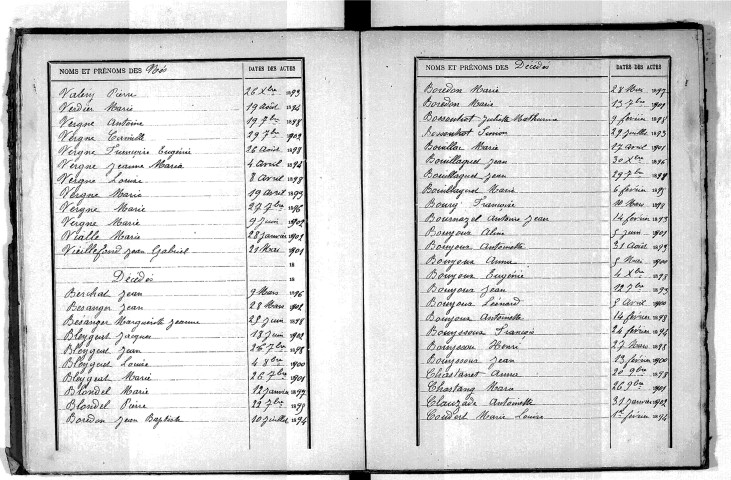 NOMS ET PRÉNOMS DES Nés DATES DES ACTES
Valery Pierre 26 Xbre 1893
Verdier Marie 19 Août 1894
Vergne Antoine 19 7bre 1898
Vergne Camille 29 7bre 1902
Vergne Françoise Eugénie 26 Août 1898
Vergne Jeanne Maria 4 Avril 1894
Vergne Louise 8 Avril 1899
Vergne Maria 19 Avril 1893
Vergne Marie 27 7bre 1896
Vergne Marie 9 Juin 1902
Vialle Marie 28 Janvier 1902
Vieillefond Jean Gabriel 21 Mars 1901
18
Décédés 18
Berchat Jean 9 Mars 1896
Besanger Jean 28 Mars 1902
Besanger Marguerite Jeanne 25 Juin 1898
Bleygeat Jacques 18 Juin 1902
Bleygeat Jean 26 7bre 1898
Bleygeat Louise 4 8bre 1900
Bleygeat Marie 26 7bre 1901
Blondel Marie 12 Janvier 1897
Blondel Pierre 22 7bre 1895
Boredon Jean Baptiste 10 Juillet 1894
NOMS ET PRÉNOMS DES Décédés DATES DES ACTES
Boredon Marie 28 Mars 1897
Boredon Marie 13 7bre 1901
Juliette Mathurine 9 février 1898
Simon 29 Juillet 1893
Bouillac Marie 17 Avril 1901
Bouillaguet Jean 30 Xbre 1896
Bouillaguet Jean 29 7bre
Bouillaguet Marie 6 février 1895
Boury Françoise 10 Mars 1899
Bournazel Antoine Jean 14 février 1893
Bouyoux Aline 5 Juin 1901
Bouyoux Antoinette 31 Août 1893
Bouyoux Anna 5 Mars 1900
Bouyoux Eugénie 4 Xbre 1898
Bouyoux Jean 12 7bre 1893
Bouyoux Léonard 8 Avril 1900
Bouyoux Antoinette 14 février 1898
Bouyssoux François 24 février 1894
Bouyssou Henri 27 Mars 1898
Bouyssoux Jean 13 février 1900
Chastanet Anna 20 9bre 1898
Chastang Maria 26 9bre 1901
Clauzade Antoinette 31 Janvier 1902
Coudert Marie Louise 1er février 1894